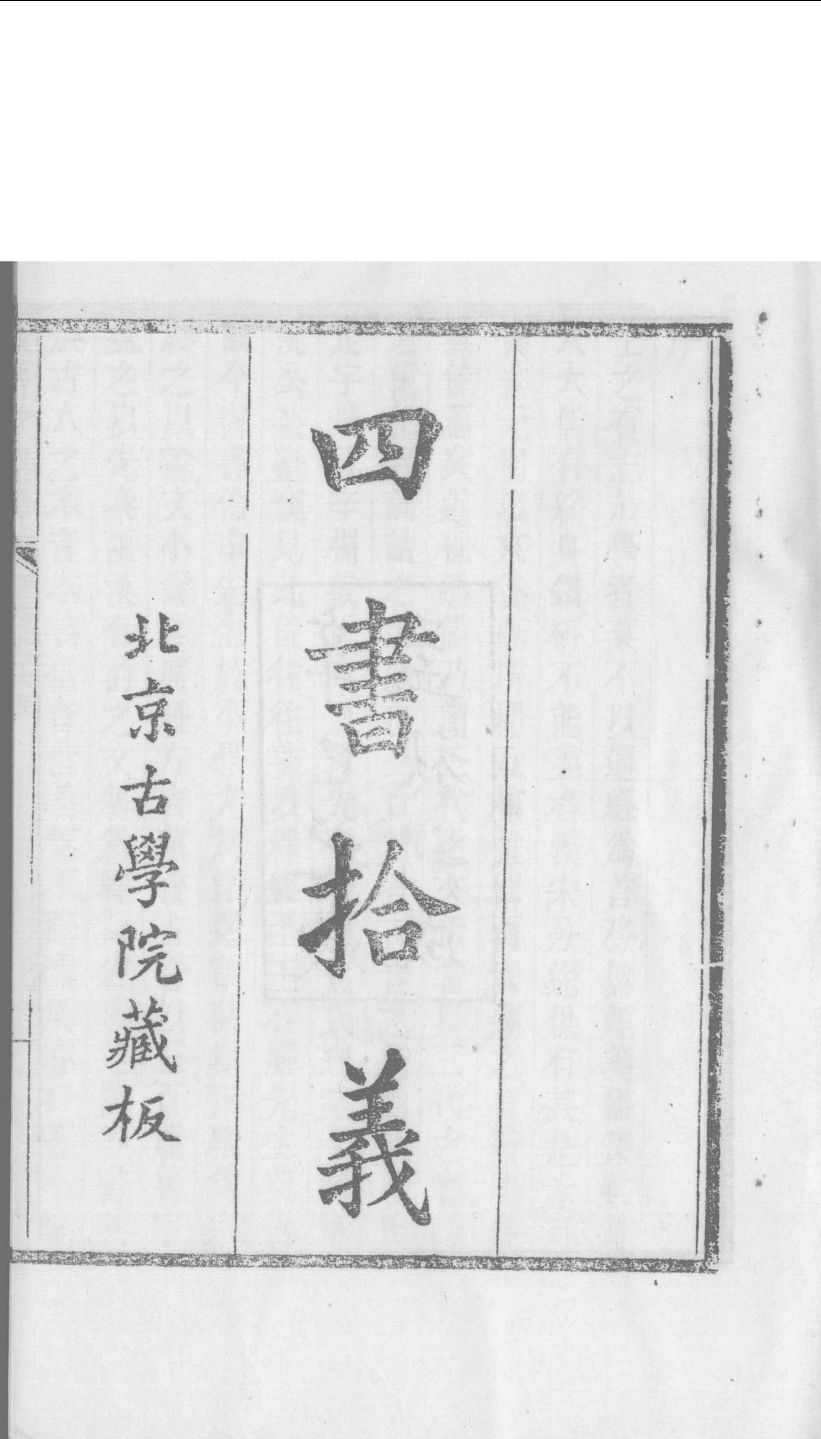 四書拾義
北京古學院藏板